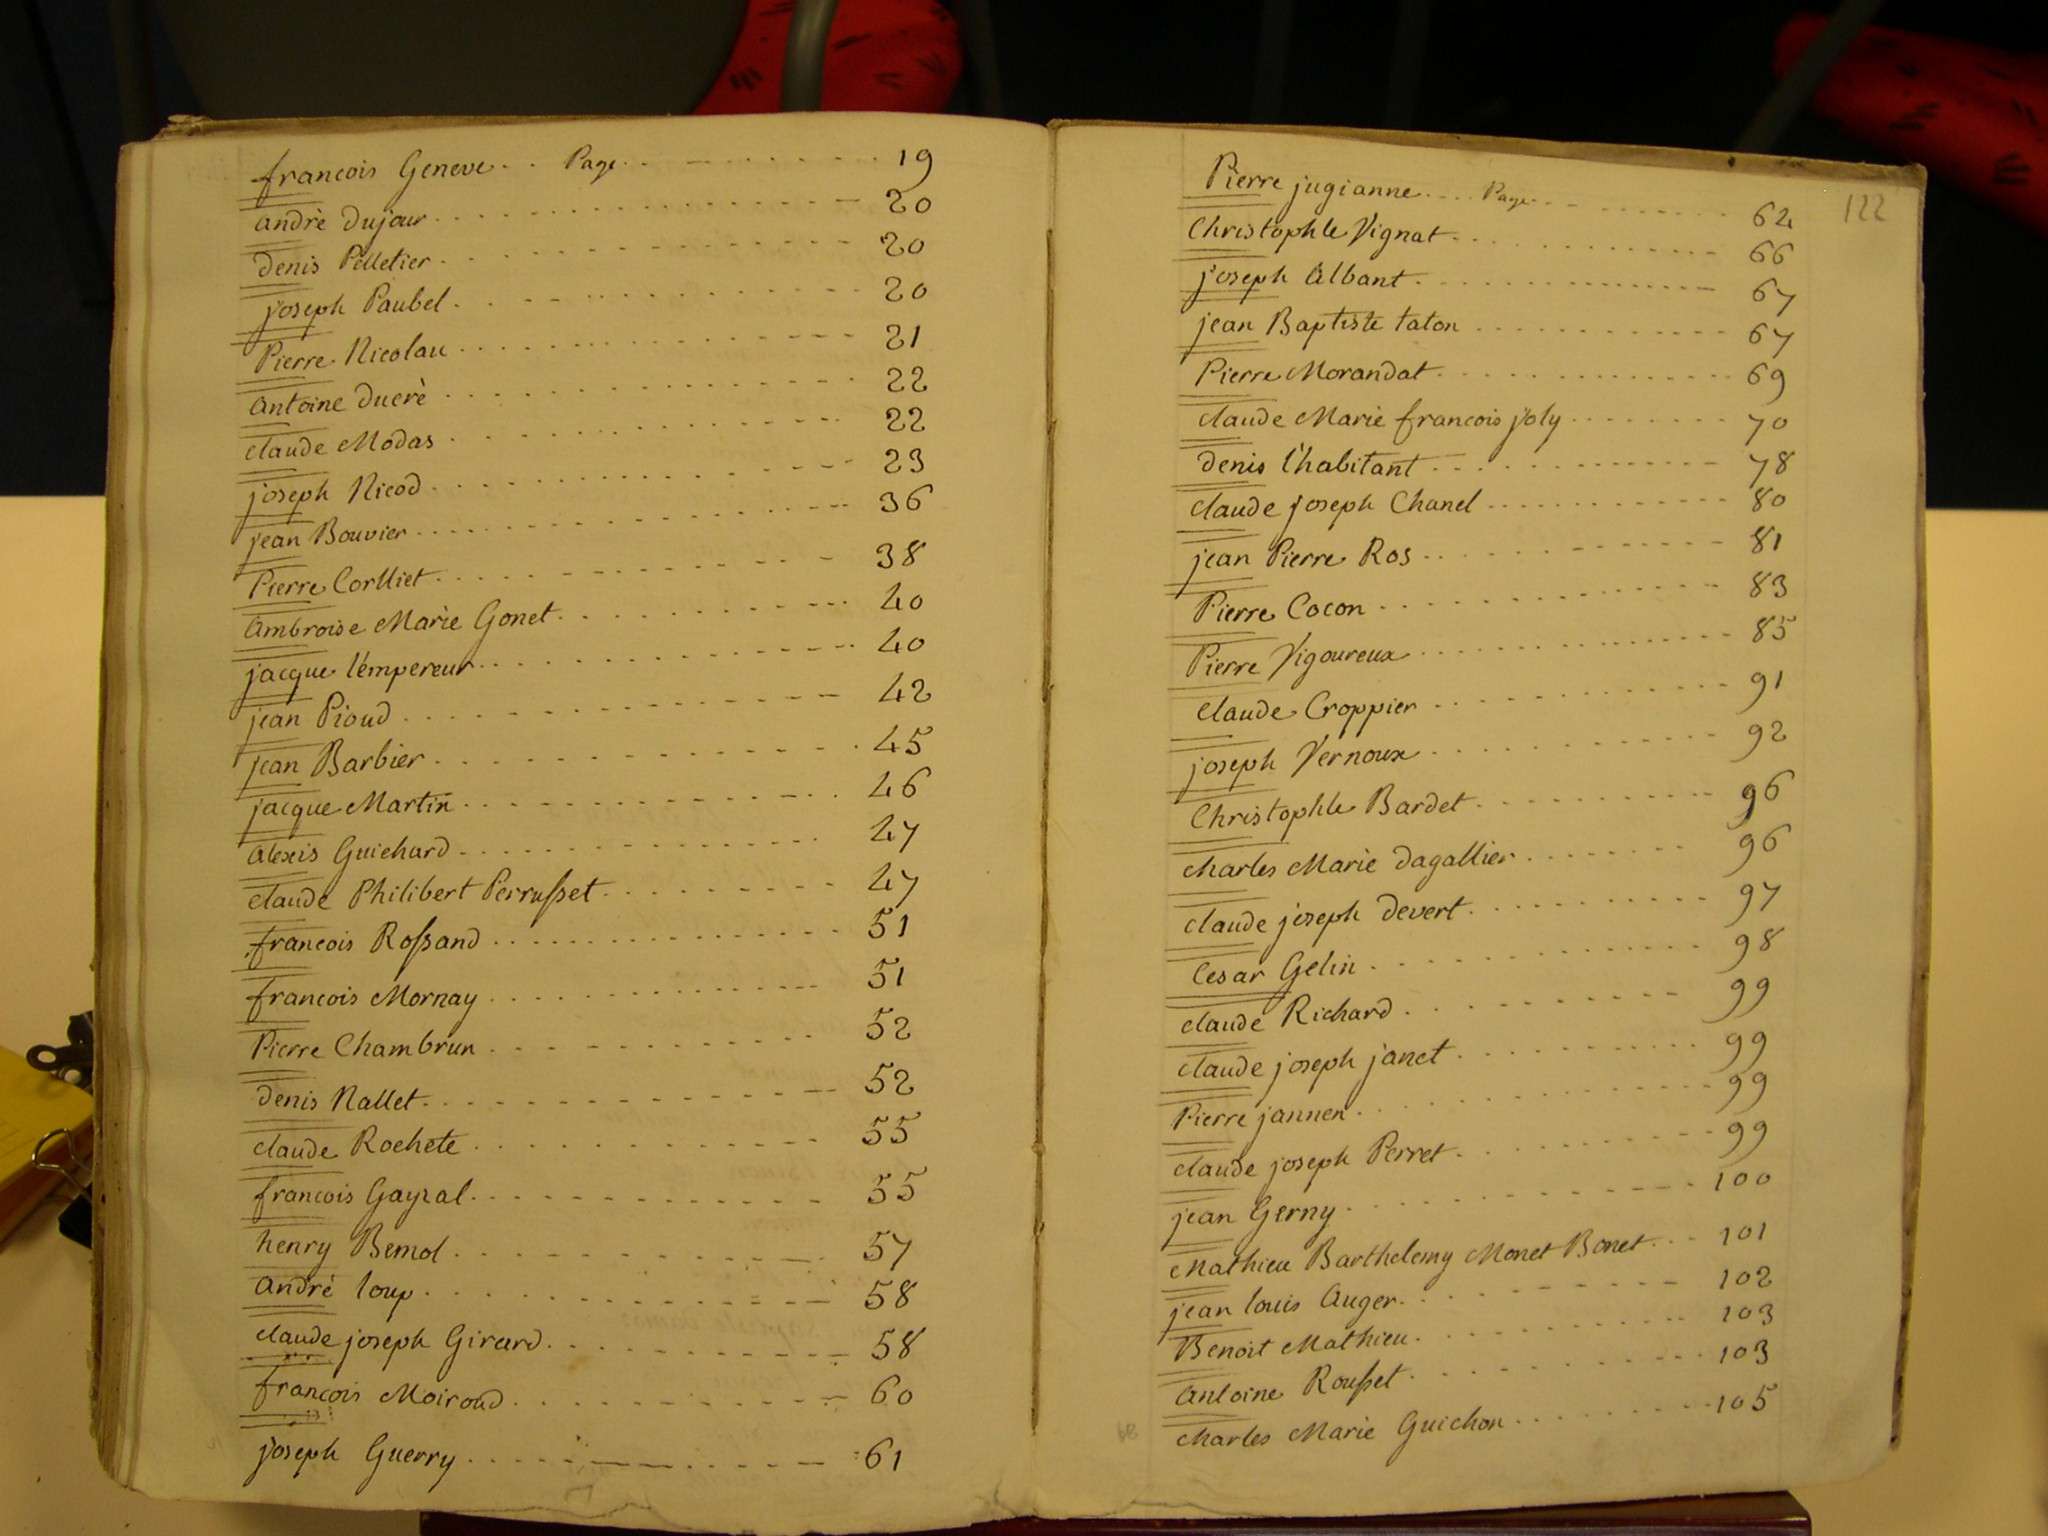 francois Geneve . . Page . . 19
andrè dujour 20
denis Pelletier 20
joseph Paubel 20
Pierre Nicolau 21
antoine ducrè 22
claude Modas 22
joseph Nicod 23
jean Bouvier 36
Pierre Corlliet 38
ambroise Marie Gonet 40
jacque l'empereur 40
jean Pioud 42
jean Barbier 45
jacque Martin 46
alexis Guichard 47
claude Philibert Perrusset 47
francois Rossand 51
francois Mornay 51
Pierre Chambrun 52
denis Nallet 52
claude Rochete 55
francois Gayral 55
henry Bemol 57
andrè loup 58
claude joseph Girard 58
francois Moiroud 60
joseph Guerry 61
122
Pierre jugianne . . . . Page 62
Christophle Vignat 66
joseph albant 67
jean Baptiste taton 67
Pierre Morandat 69
claude Marie francois joly 70
denis l'habitant 78
claude joseph Chanel 80
jean Pierre Ros 81
Pierre Cocon 83
Pierre Vigoureux 85
claude Croppier 91
joseph Vernoux 92
Christophle Bardet 96
charles Marie dagallier 96
claude joseph devert 97
Cesar Gelin 98
claude Richard 99
claude joseph janet 99
Pierre jannen 99
claude joseph Perret 99
jean Gerny 100
Mathieu Barthelemy Monet Bonet 101
jean louis auger 102
Benoit Mathieu 103
antoine Rousset 103
charles Marie Guichon 105